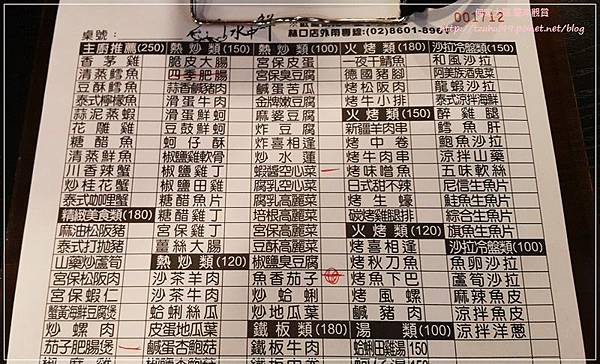 001712
桌號：
林口店外用專線:(02)8601-89
主廚推薦(250)
香茅雞
清蒸鱈魚
豆酥鱈魚
泰式檸檬魚
蒜泥蒸蝦
花雕雞
糖醋魚
清蒸鮮魚
川香辣蟹
炒桂花蟹
泰式咖哩蟹
精緻美食類(180)
麻油松阪豚
泰式打拋豬
山藥炒蘆筍
宮保松阪肉
宮保蝦仁
蟹黃海鮮豆腐煲
炒螺肉
茄子肥腸煲
熱炒類(150)
脆皮大腸
四季肥腸
蒜香鹹豬肉
滑蛋牛肉
滑蛋鮮蚵
豆鼓鮮蚵
蚵仔酥
椒鹽雞軟骨
椒鹽雞丁
椒鹽田雞
糖醋魚片
糖醋雞丁
宮保雞丁
薑絲大腸
熱炒類(120)
沙茶羊肉
沙茶牛肉
蛤蜊絲瓜
皮蛋地瓜葉
鹹蛋杏鮑菇
宮保皮蛋
宮保臭豆腐
鹹蛋苦瓜
金牌嫩豆腐
麻婆豆腐
炸豆腐
炸喜相逢
炒水蓮
蝦醬空心菜
腐乳空心菜
腐乳高麗菜
培根高麗菜
宮保高麗菜
豆酥高麗菜
椒鹽臭豆腐
魚香茄子
炒蛤蜊
炒地瓜葉
鐵板類(180)
鐵板牛肉
火烤類(180)
一夜干鯖魚
德國豬腳
烤松阪肉
烤牛小排
火烤類(150)
新疆羊肉串
烤中卷
烤牛肉串
烤味噌魚
日式甜不辣
烤生蠔
碳烤雞腿排
火烤類(120)
烤喜相逢
烤秋刀魚
烤魚下巴
烤風螺
鹹豬肉
湯類(100)
蛤蜊田雞湯150
沙拉冷盤類(150)
和風沙拉
阿美族酒鬼菜
龍蝦沙拉
泰式涼拌海鮮
醉雞腿
鱈魚肝
鮑魚沙拉
涼拌山藥
五味軟絲
尼信生魚片
鮭魚生魚片
綜合生魚片
旗魚生魚片
沙拉冷盤類(100)
魚卵沙拉
蘆筍沙拉
麻辣魚皮
涼拌魚皮
涼拌洋蔥